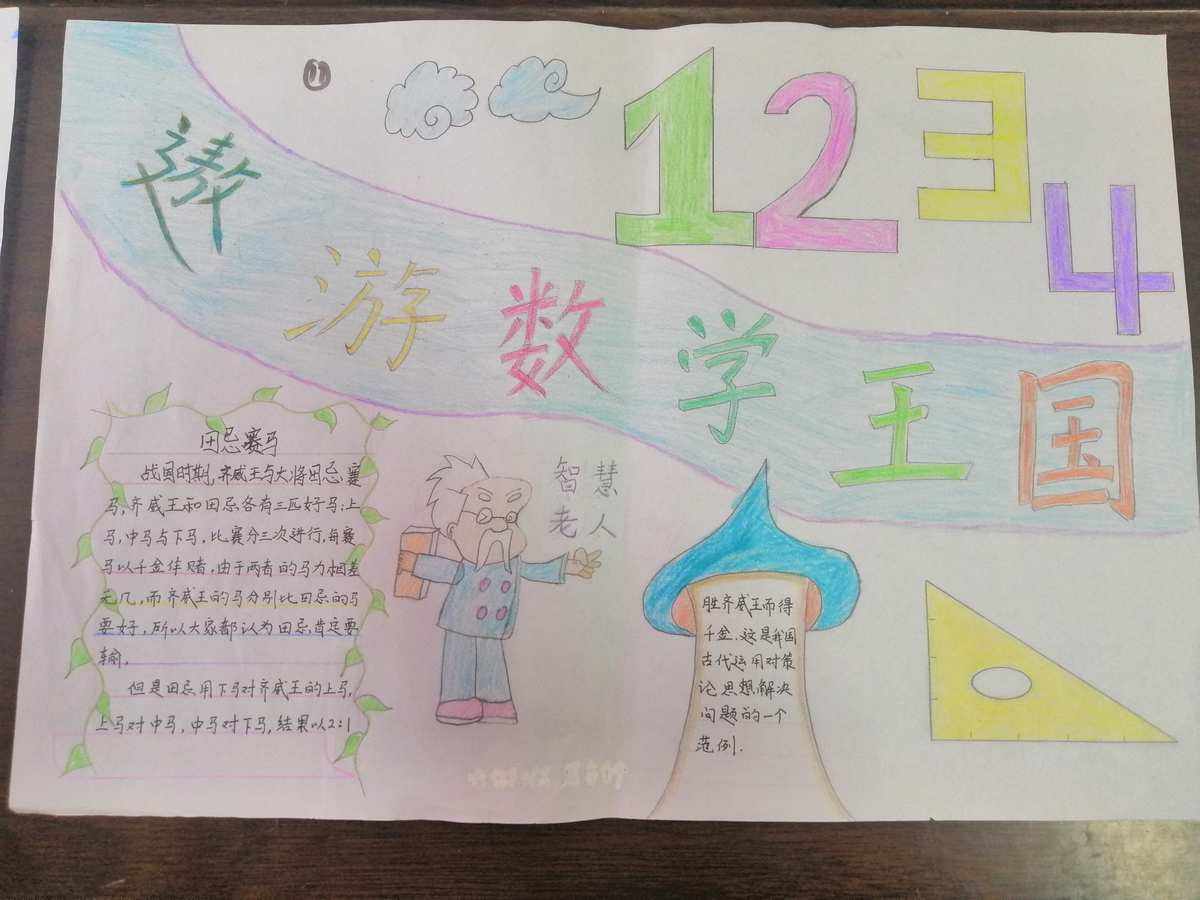 ①
1 2 3 4
遨游数学王国
田忌赛马
战国时期,齐威王与大将田忌赛
马,齐威王和田忌各有三匹好马:上
马,中马与下马.比赛分三次进行,每赛
马以千金作赌.由于两者的马力相差
无几,而齐威王的马分别比田忌的马
要好,所以大家都认为田忌肯定要
输.
但是田忌用下马对齐威王的上马,
上马对中马,中马对下马,结果以2:1
智慧
老人
胜齐威王而得
千金.这是我国
古代运用对策
论思想解决
问题的一个
范例.